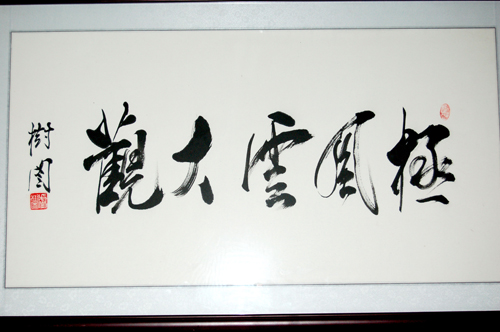 極風雲大觀
樹